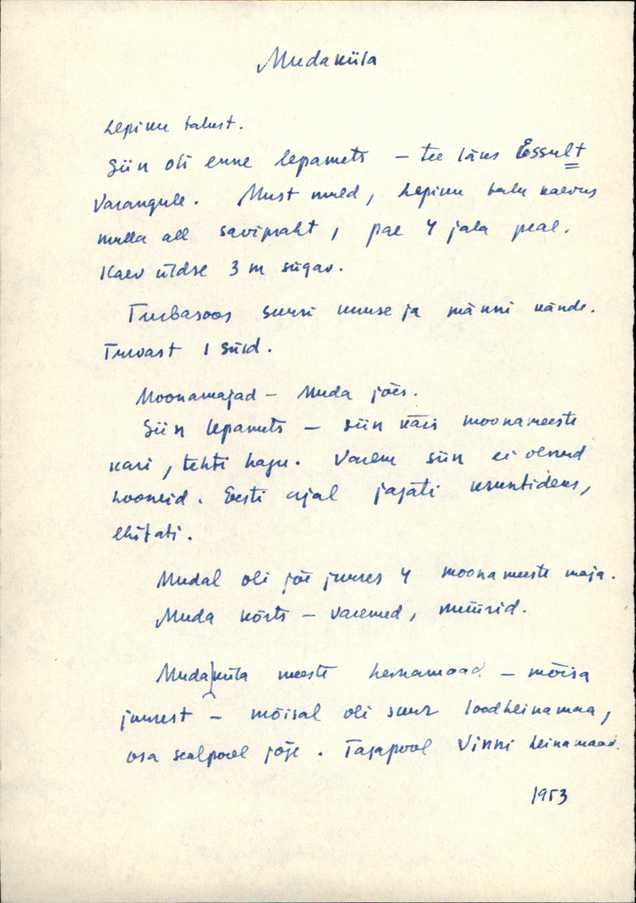 Mudaküla
Lepiku talust.
Siin oli enne lepamets – tee läks Essult
Varangule. Must muld, Lepiku talu kaevus
mulla all saviplaht, pae 4 jala peal.
Kaev üldse 3 m sügav.
Turbasoos suuri kuuse ja männi kände.
Turvast 1 süld.
Moonamajad – Muda jões.
Siin lepamets – siin käis moonameeste
kari, tehti hagu. Varem siin ei olnud
hooneid. Eesti ajal jagati kruntideks,
ehitati.
Mudal oli jõe juures 4 moonameeste maja.
Muda kõrts – varemed, müürid.
Mudaküla meeste heinamaad – mõisa
juurest – mõisal oli suur loodheinamaa,
osa sealpool jõge. Tagapool Vinni heinamaad.
1953